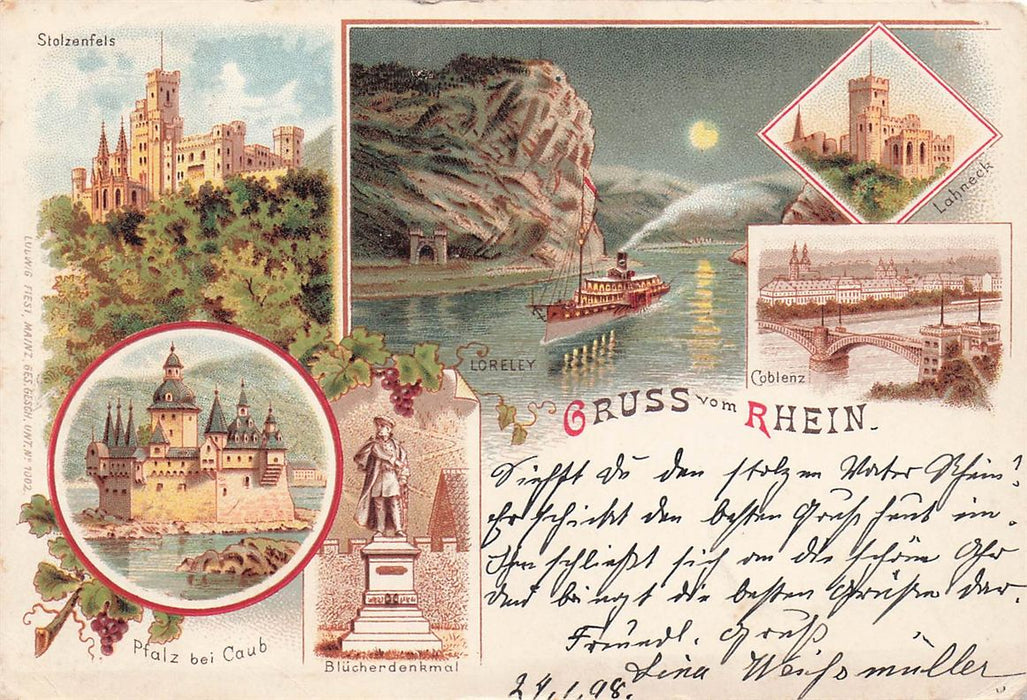 Stolzenfels
LUDWIG FIEST, MAINZ GES. GESCH. UNT. Nº 1202.
Lahneck
Coblenz
LORELEY
GRUSS vom RHEIN.
Pfalz bei Caub
Blücherdenkmal
Siehst Du den stolzen Vater Rhein?
Er schickt den besten Gruß heut ein.
schließt sich an die schöne
Und bringt die besten Grüße dar.
Freundl. Gruß
Lina Weihsmüller
24.1.98.